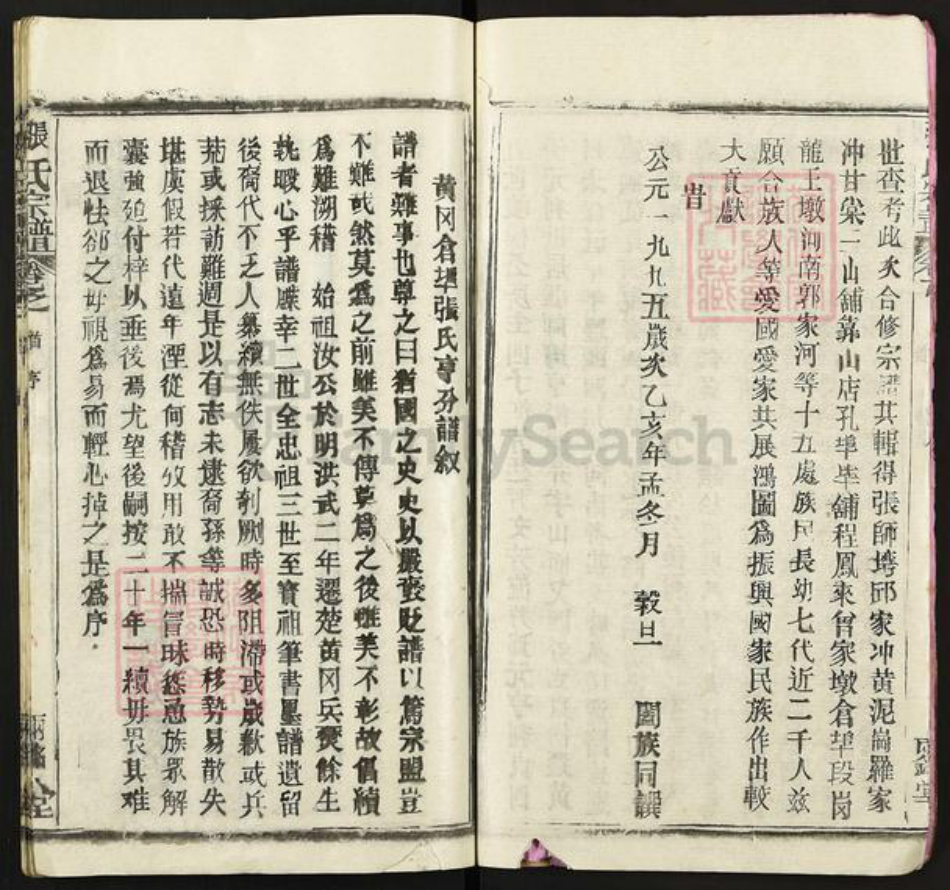 世查考此次合修宗譜共輯得張師塆邱家冲黄泥崗羅家
冲甘棠二山舖靠山店孔埠畢舖程鳳來曾家墩倉埠段岗
龍王墩河南郭家河等十五處族民長幼七代近二千人兹
願合族人等愛國愛家共展鴻圖為振興國家民族作出較
大貢獻
旹
公元一九九五歲次乙亥年孟冬月 穀旦 闔族同譔
黄冈倉埠張氏享分譜叙
譜者難事也尊之曰猶國之史史以嚴褒貶譜以篤宗盟豈
不難哉然莫為之前雖美不傳莫為之後惟美不彰故倡續
為難溯稽 始祖汝公於明洪武二年遷楚黄冈兵燹餘生
執暇心乎譜牒幸二世全忠祖三世至寳祖筆書墨譜遺留
後裔代不乏人纂續無佚屡欲剞劂時多阻滯或歲歉或兵
荒或採訪難週是以有志未逮裔孫等誠恐時移勢易散失
堪虞假若代遠年湮從何稽攷用敢不揣冒昧慫恿族眾解
囊強廹付梓以垂後焉尤望後嗣按二十年一續毋畏其难
而退怯郤之毋視為易而輕心掉之是為序
張氏宗譜 卷之 首 序
FamilySearch